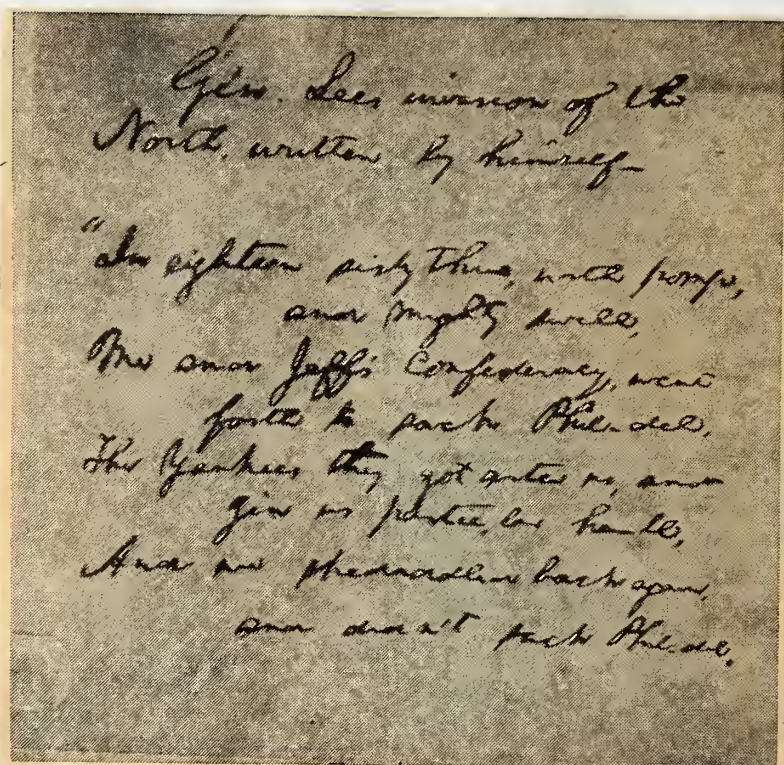 Gen. Lees invasion of the
North, written by himself—
"In eighteen sixty three, with pomp,
and mighty swell,
Me and Jeff's Confederacy, went
forth to sack Phil-del,
The Yankees they got arter us, and
giv us particular hell,
And we skedaddled back again,
and didn't sack Phil-del.